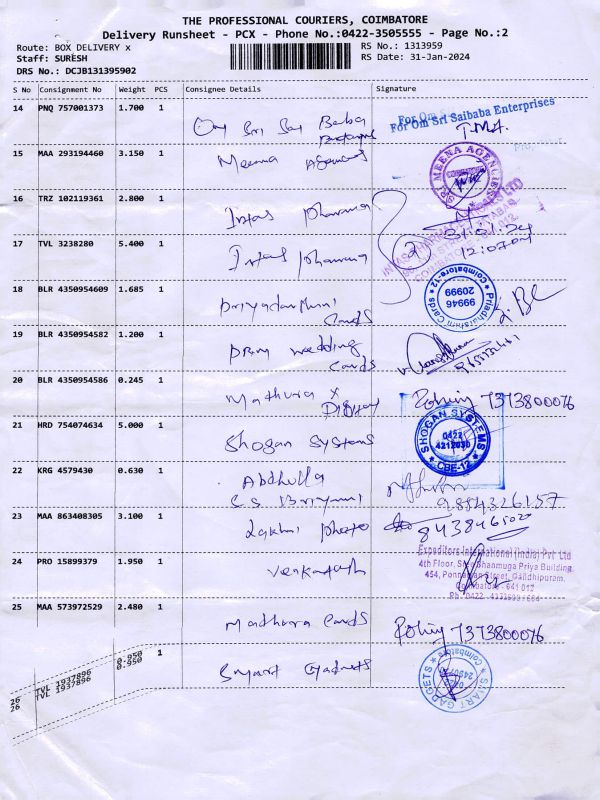 THE PROFESSIONAL COURIERS, COIMBATORE
Delivery Runsheet - PCX - Phone No.:0422-3505555 - Page No.:2
Route: BOX DELIVERY x RS No.: 1313959
Staff: SURESH RS Date: 31-Jan-2024
DRS No.: DCJB131395902
S No Consignment No Weight PCS Consignee Details Signature
14 PNQ 757001373 1.700 1 Om Sri Sai Baba
For Om Sri Saibaba Enterprises
15 MAA 293194460 3.150 1 Meena Agencies
SRI MEENA AGENCIES
16 TRZ 102119361 2.800 1 Intas pharma
17 TVL 3238280 5.400 1 Intas pharma
31.01.24
12:07
18 BLR 4350954609 1.685 1 Priyadarshini Cards
99946 20999
Coimbatore-12
19 BLR 4350954582 1.200 1 wedding cards
20 BLR 4350954586 0.245 1 Mathura x
7373800076
21 HRD 754074634 5.000 1 Shogan Systems
SHOGAN SYSTEMS
0422
4212030
CBE-12
22 KRG 4579430 0.630 1 Abdhulla
S.S. Briyani
9884326157
23 MAA 863408305 3.100 1 Lakshmi photo
8438465020
24 PRO 15899379 1.950 1 Venkatesh
Expeditors International (India) Pvt Ltd
4th Floor, Sree Shanmuga Priya Building,
454, Ponnaiyan Street, Gandhipuram,
Coimbatore - 641 012
25 MAA 573972529 2.480 1 Madhura Cards
7373800076
26 TVL 1937896 0.950 1 Smart Gadgets
26 TVL 1937896 0.950
SMART GADGETS
Coimbatore